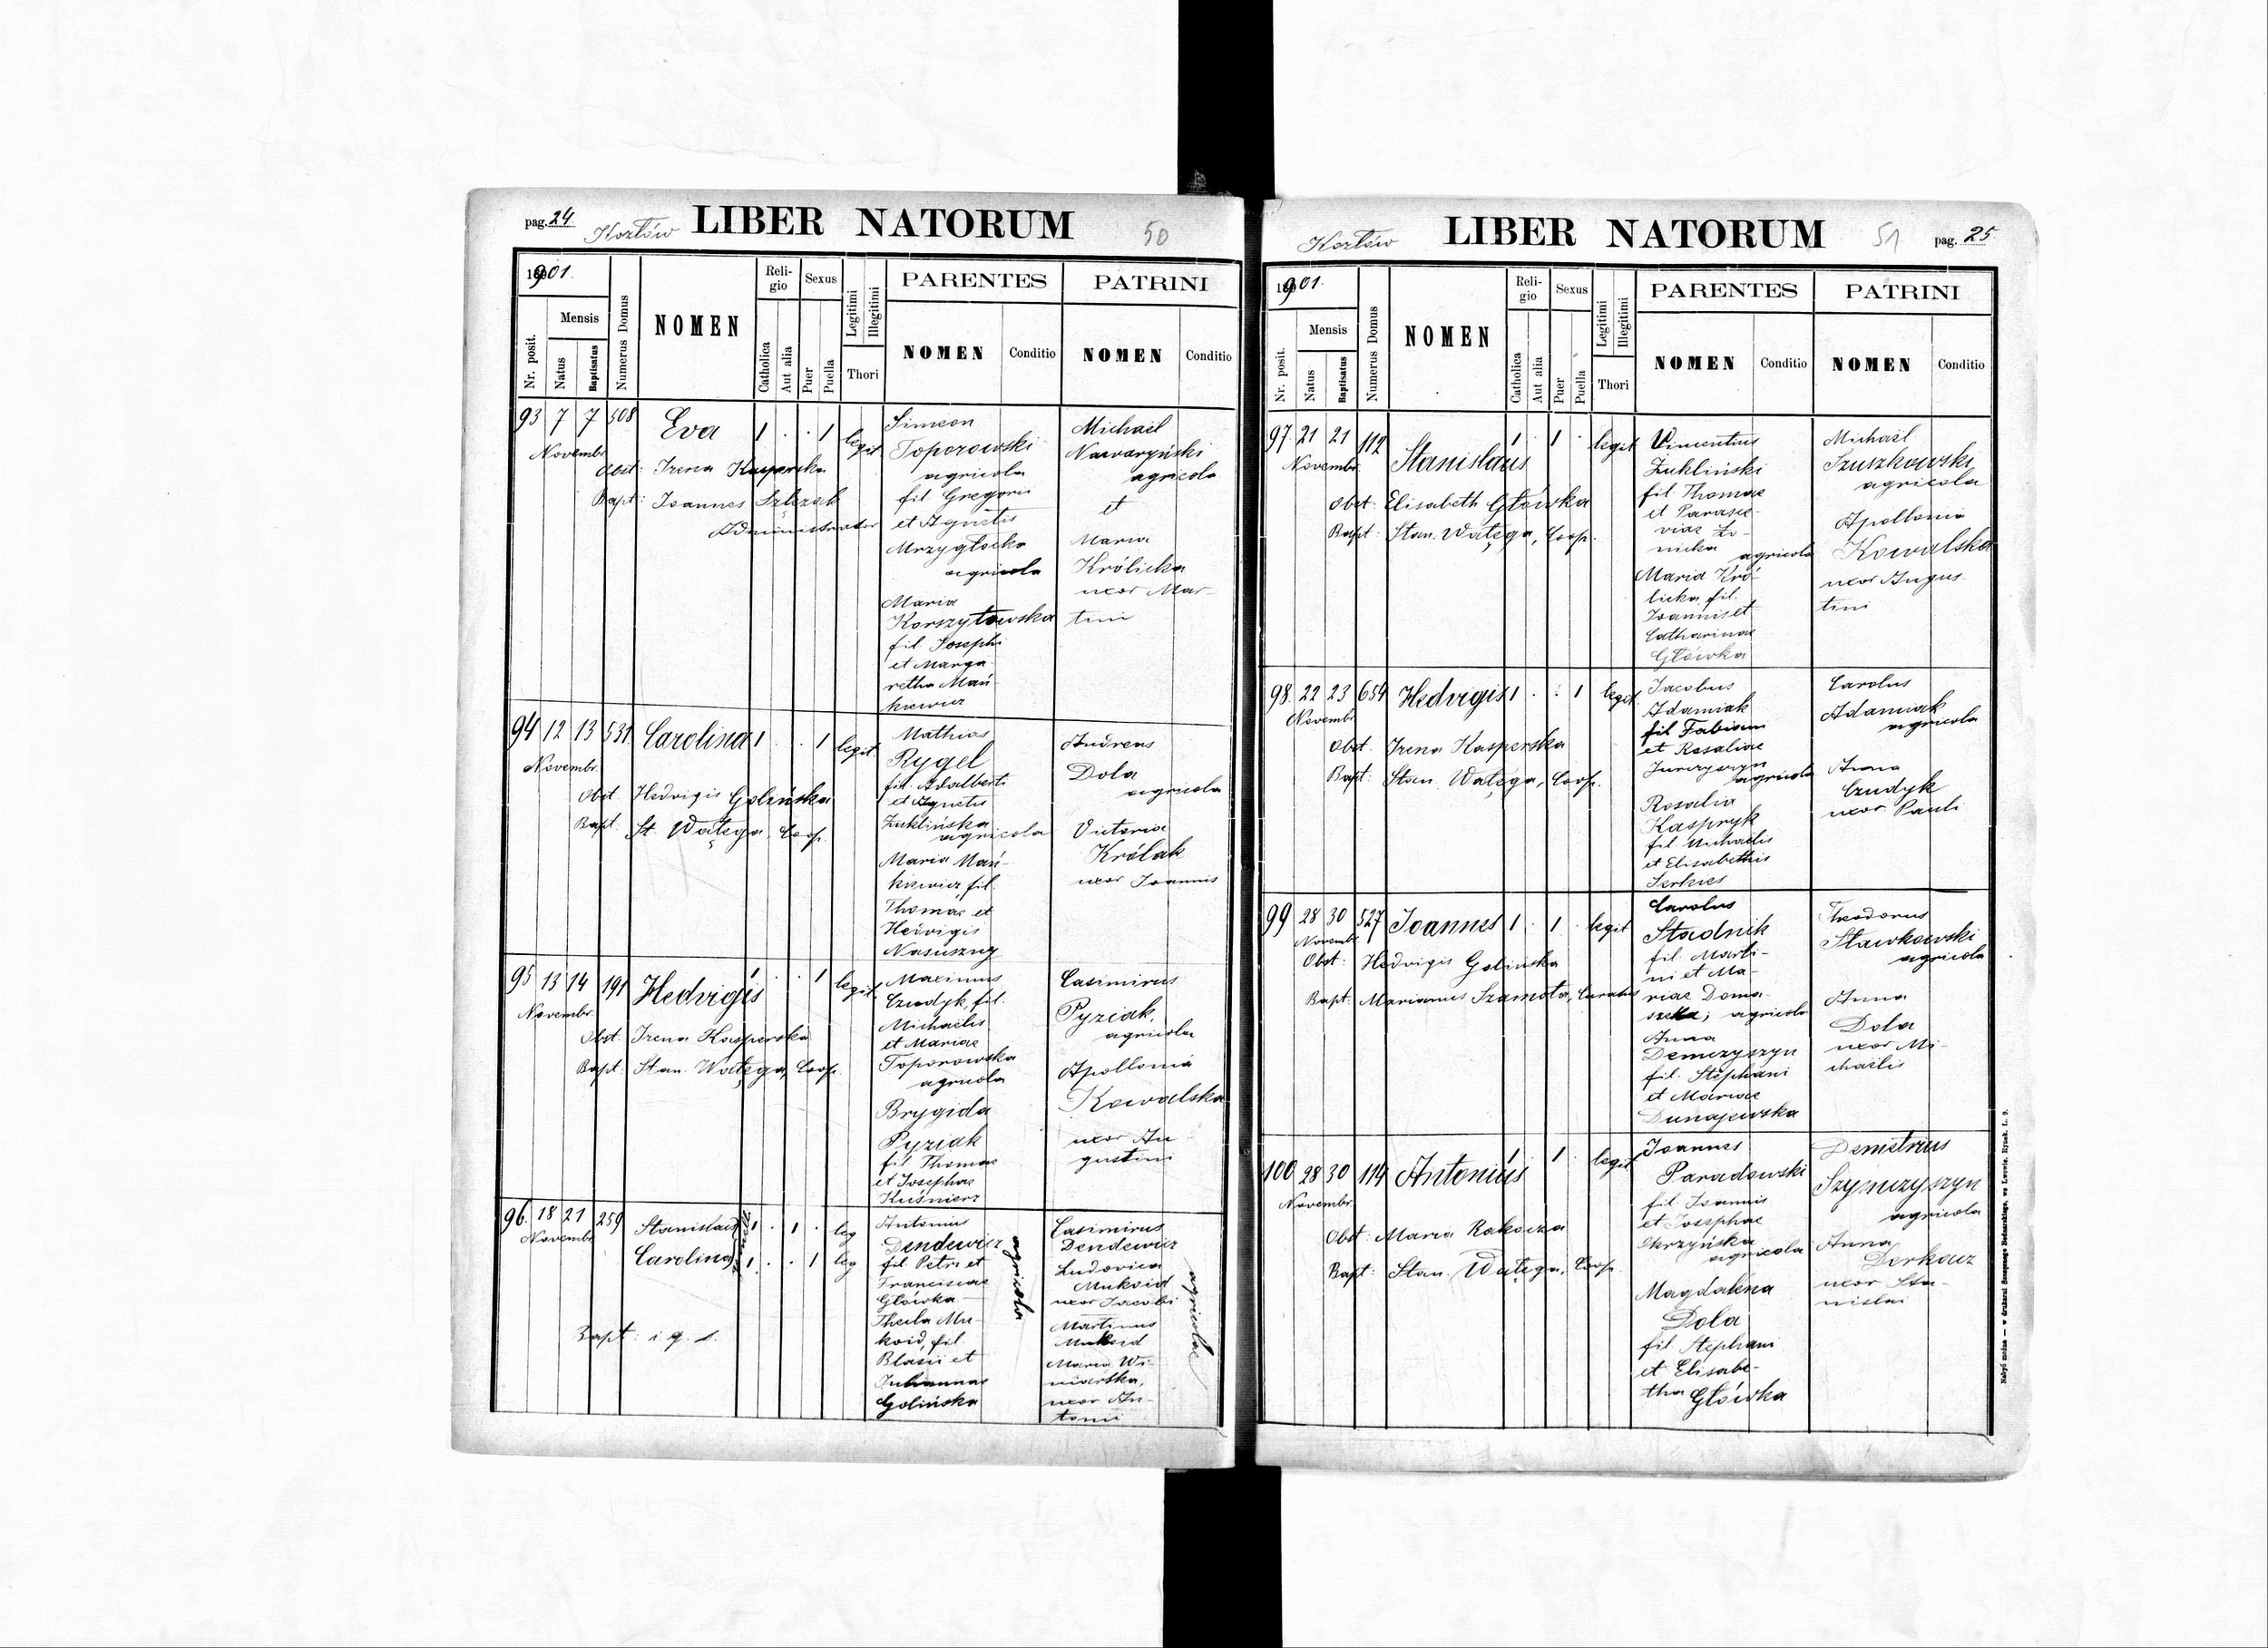 pag. 24 Kozłów LIBER NATORUM 50
1901.
Nr. posit.
Mensis
Natus
Baptisatus
Numerus Domus
NOMEN
Religio
Catholica
Aut alia
Sexus
Puer
Puella
Legitimi
Illegitimi
Thori
PARENTES
NOMEN
Conditio
PATRINI
NOMEN
Conditio
93 7 7 508 Eva 1 . . 1 legit
Novembr.
Obst: Irena Kasperska
Bapt: Joannes Szlęzak
Administrator
Simeon
Toporowski
agricola
fil Gregorii
et Agnetis
Mrzygłocka
agricola
Maria
Korszytowska
fil Josephi
et Marga-
retha Mań-
kiewicz
Michaël
Nawaryński
agricola
et
Maria
Królicka
uxor Mar-
tini
94 12 13 531 Carolina 1 . . 1 legit
Novembr.
Obst. Hedvigis Golińska
Bapt. St Watęga, Coop.
Mathias
Rygel
fil. Adalberti
et Agnetis
Żuklińska
agricola
Maria Mań-
kiewicz, fil.
Thomae et
Hedvigis
Nasuszny
Andreas
Dola
agricola
Victoria
Królak
uxor Joannis
95 13 14 191 Hedvigis 1 . . 1 legit
Novembr.
Obst. Irena Kasperska
Bapt: Stan. Watęga, Coop.
Maximus
Czudyk, fil.
Michaëlis
et Mariae
Toporowska
agricola
Brygida
Pyziak
fil Thomae
et Josephae
Kuśnierz
Casimirus
Pyziak,
agricola
Apollonia
Kowalska
uxor Au-
gustini
96. 18 21 259 Stanislaus 1 . 1 . leg
Novembr.
Carolina 1 . . 1 leg
Bapt: i. q. s.
Antonius
Dendewicz
fil Petri et
Franciscae
Główka
Thecla Mu-
koid, fil.
Blasii et
Julianna
Golińska
agricola
Casimirus
Dendewicz
Ludovica
Mukoid
uxor Jacobi
Martinus
Mukoid
Maria Wi-
niarska,
uxor An-
tonii
agricolae
Kozłów LIBER NATORUM 51 pag. 25
1901.
Nr. posit.
Mensis
Natus
Baptisatus
Numerus Domus
NOMEN
Religio
Catholica
Aut alia
Sexus
Puer
Puella
Legitimi
Illegitimi
Thori
PARENTES
NOMEN
Conditio
PATRINI
NOMEN
Conditio
97. 21 21 112 Stanislaus 1 . 1 . legit
Novembr.
Obst: Elisabeth Główka
Bapt: Stan. Watęga, Coop.
Vincentius
Żukliński
fil Thomae
et Parasce-
viae Ło-
nicka agricola
Maria Kró-
licka, fil.
Joannis et
Catharinae
Główka
Michaël
Szuszkowski
agricola
Apollonia
Kowalska
uxor Augus-
tini
98. 22 23 654 Hedvigis 1 . . 1 legit
Novembr.
Obst. Irena Kasperska
Bapt: Stan. Watęga, Coop.
Jacobus
Adamiak
fil Fabiani
et Rosaliae
Jurczyszyn
agricola
Rosalia
Kaspryk
fil Michaëlis
et Elisabethis
Serkies
Carolus
Adamiak
agricola
Anna
Czudyk
uxor Pauli
99 28 30 527 Joannes 1 . 1 . legit
Novembr.
Obst. Hedvigis Golinska
Bapt: Marianus Szamota, Curatus
Carolus
Stadnik
fil. Marti-
ni et Ma-
riae Doma-
szka; agricola
Anna
Demczyszyn
fil. Stephani
et Mariae
Dunajewska
Theodorus
Sławkowski
agricola
Anna
Dola
uxor Mi-
chaëlis
100. 28 30 114 Antonius 1 . 1 . legit
Novembr.
Obst: Maria Rakocza
Bapt: Stan. Watęga, Coop.
Joannes
Paradowski
fil. Joannis
et Josephae
Skrzyńska
agricola
Magdalena
Dola
fil Stephani
et Elisabe-
tha Główka
Demetrius
Szymczyszyn
agricola
Anna
Derkacz
uxor Sta-
nislai